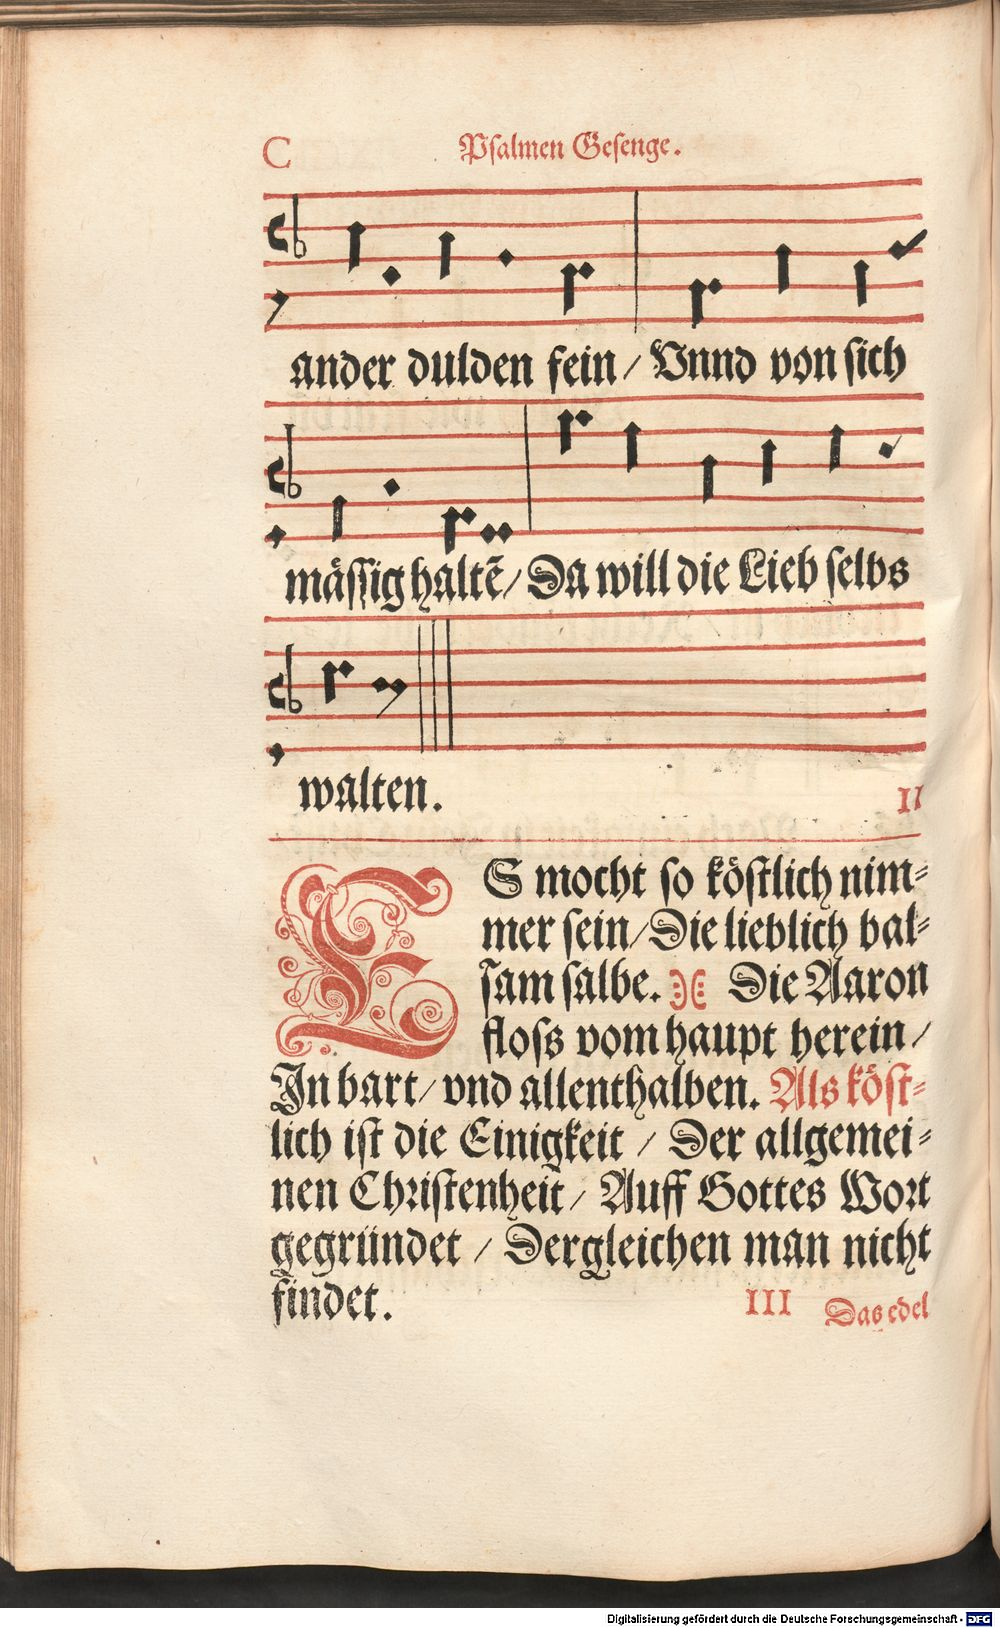 C Psalmen Gesenge.
ander dulden fein / Vnnd von sich
mässig haltẽ / Da will die Lieb selbs
walten.
II
ES mocht so köstlich nim⸗
mer sein / Die lieblich bal⸗
sam salbe. Die Aaron
floss vom haupt herein /
In bart / vnd allenthalben. Als köst⸗
lich ist die Einigkeit / Der allgemei⸗
nen Christenheit / Auff Gottes Wort
gegründet / Dergleichen man nicht
findet.
III Das edel
Digitalisierung gefördert durch die Deutsche Forschungsgemeinschaft - DFG